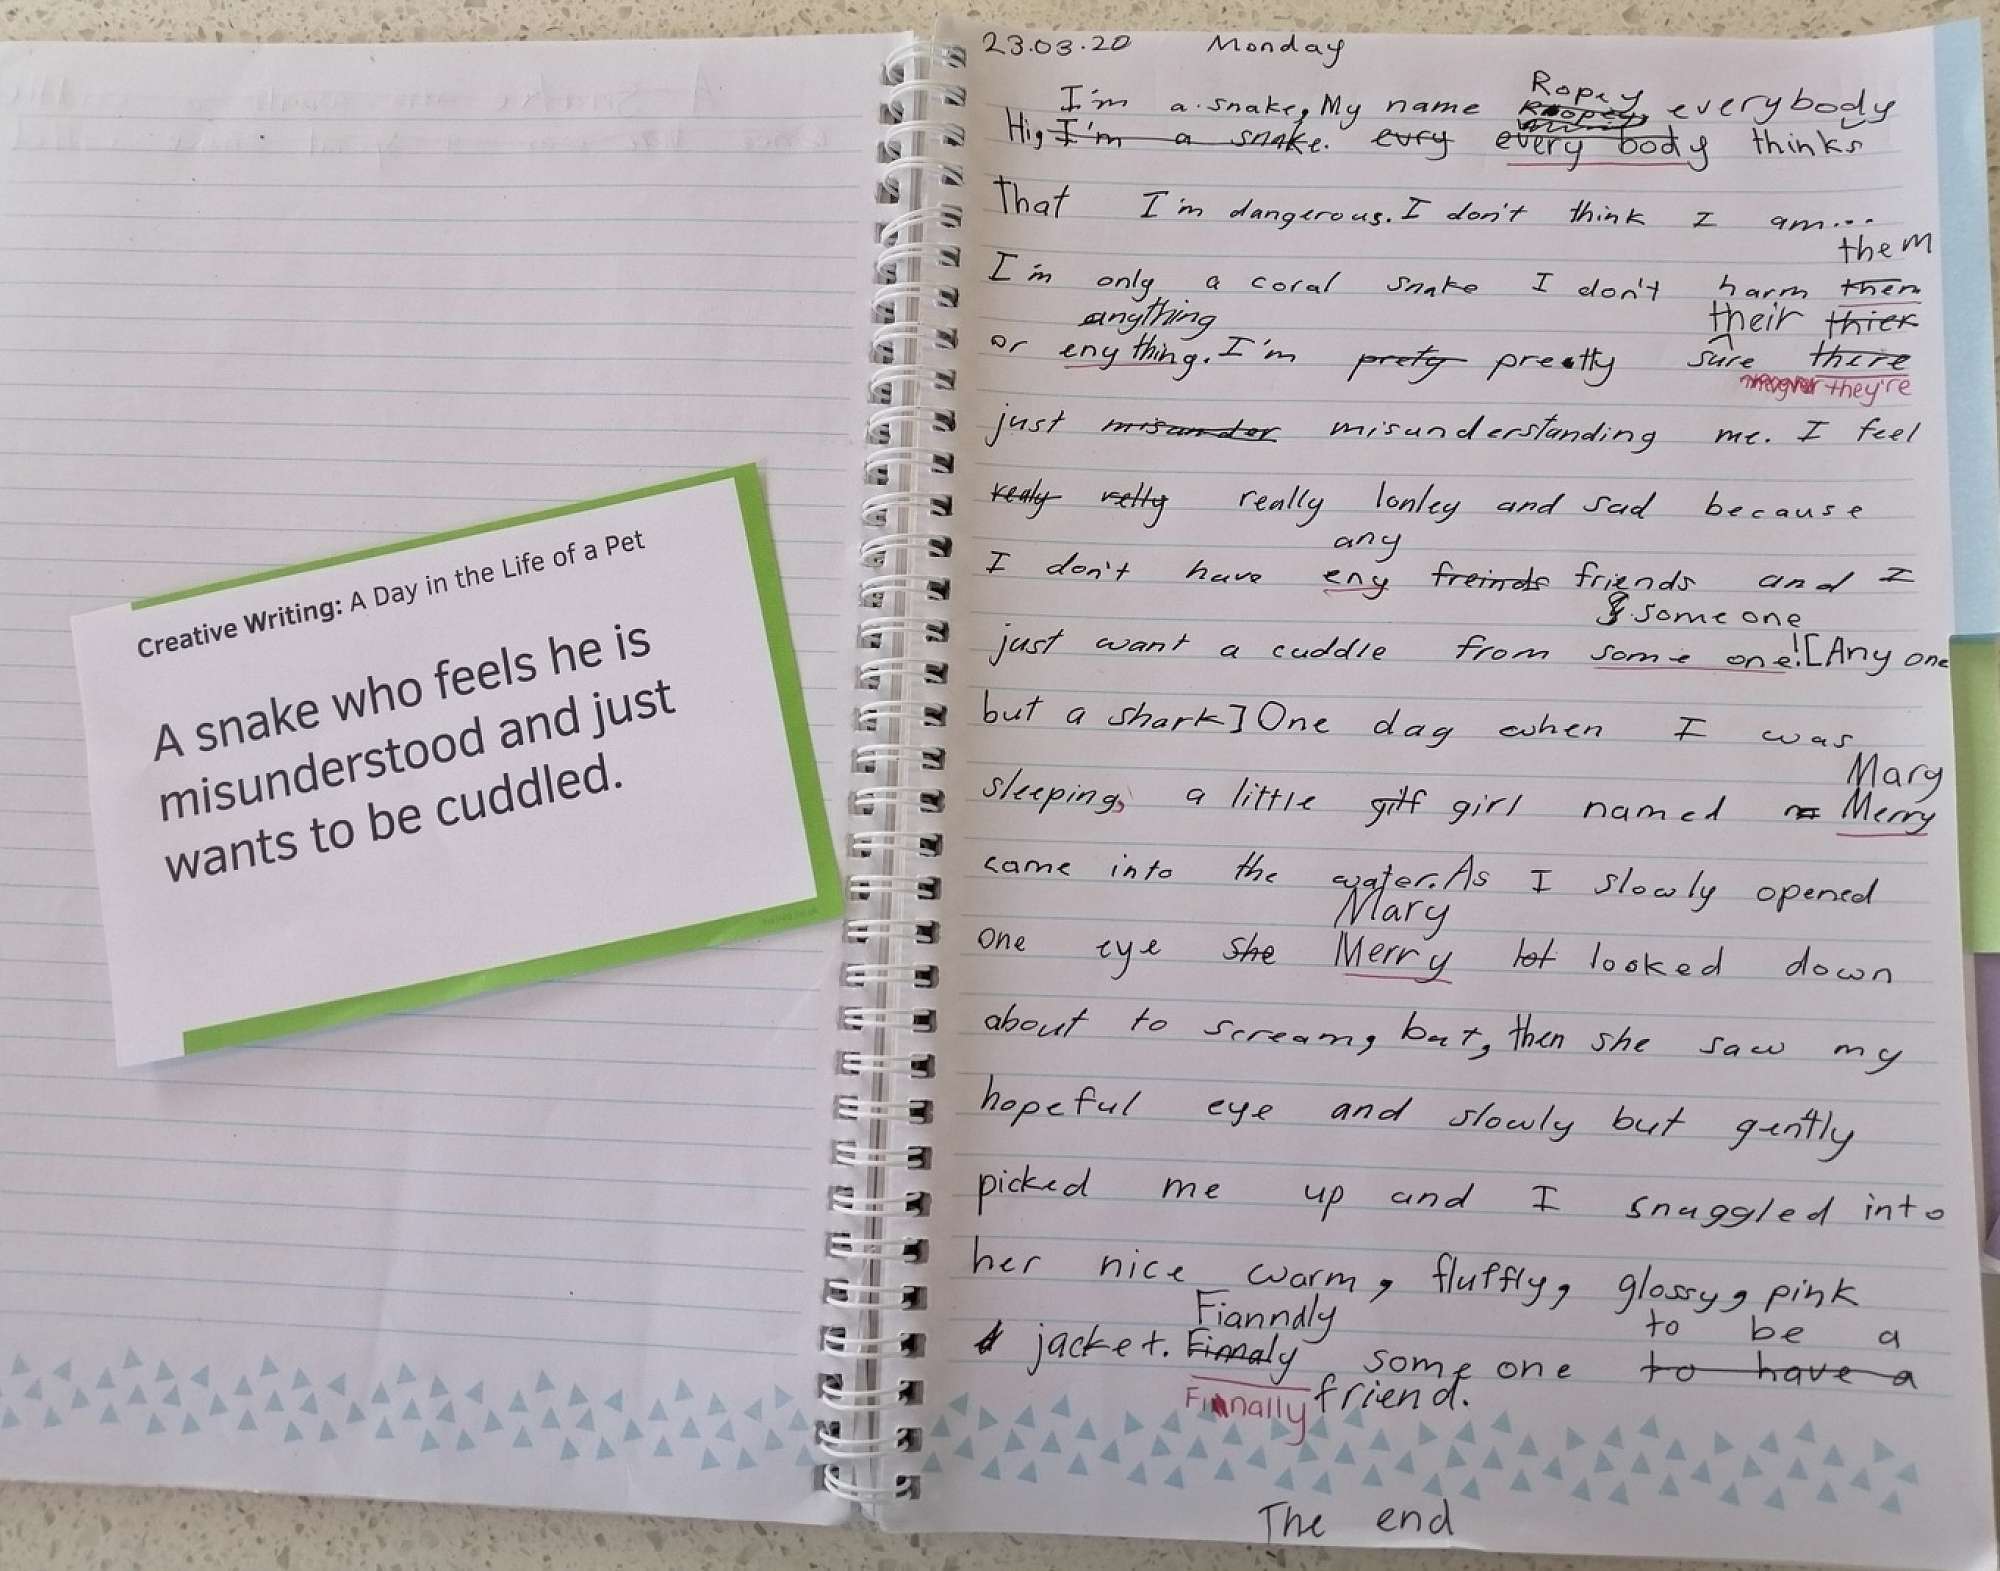 Creative Writing: A Day in the Life of a Pet
A snake who feels he is
misunderstood and just
wants to be cuddled.
23.03.20 Monday
Ropey
I'm a snake, My name everybody
Hi, I'm a snake. evry every body thinks
that I'm dangerous. I don't think I am...
them
I'm only a coral snake I don't harm then
anything their thier
or enything. I'm prety pretty sure there
they're
just misunder misunderstanding me. I feel
realy relly really lonley and sad because
any
I don't have eny freinds friends and I
someone
just want a cuddle from some one! [Any one
but a shark] One day when I was
Mary
sleeping, a little girl named Merry
came into the water. As I slowly opened
Mary
one eye she Merry lot looked down
about to scream, but, then she saw my
hopeful eye and slowly but gently
picked me up and I snuggled into
her nice warm, fluffly, glossy, pink
Fianndly to be a
jacket. Finnaly some one to have a
Finnally friend.
The end